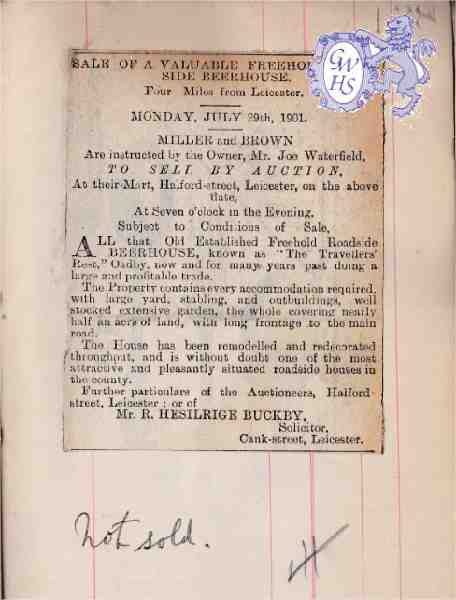 GWHS
SALE OF A VALUABLE FREEHO
SIDE BEERHOUSE,
Four Miles from Leicester.
MONDAY, JULY 29th, 1901.
MILLER and BROWN
Are instructed by the Owner, Mr. Joe Waterfield,
TO SELL BY AUCTION,
At their Mart, Halford-street, Leicester, on the above
date,
At Seven o'clock in the Evening,
Subject to Conditions of Sale,
ALL that Old Established Freehold Roadside
BEERHOUSE, known as "The Travellers'
Rest," Oadby, now and for many years past doing a
large and profitable trade.
The Property contains every accommodation required,
with large yard, stabling, and outbuildings, well
stocked extensive garden, the whole covering nearly
half an acre of land, with long frontage to the main
road.
The House has been remodelled and redecorated
throughout, and is without doubt one of the most
attractive and pleasantly situated roadside houses in
the county.
Further particulars of the Auctioneers, Halford-
street, Leicester; or of
Mr. R. HESILRIGE BUCKBY,
Solicitor,
Cank-street, Leicester.
Not sold.